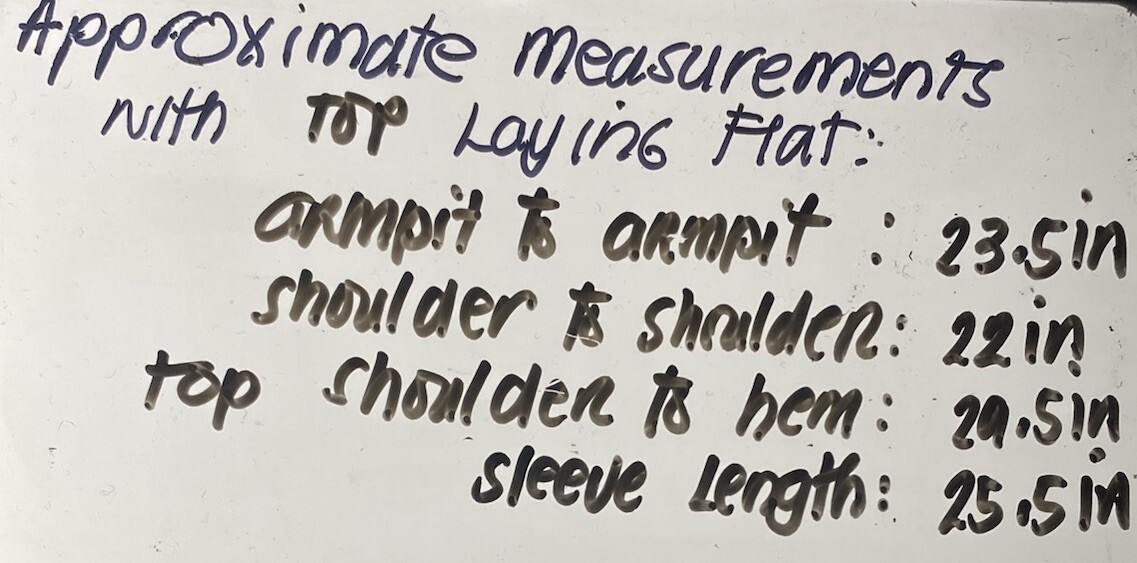 Approximate measurements
with TOP Laying Flat:
armpit to armpit : 23.5in
shoulder to shoulder: 22in
top shoulder to hem: 29.5in
sleeve Length: 25.5in